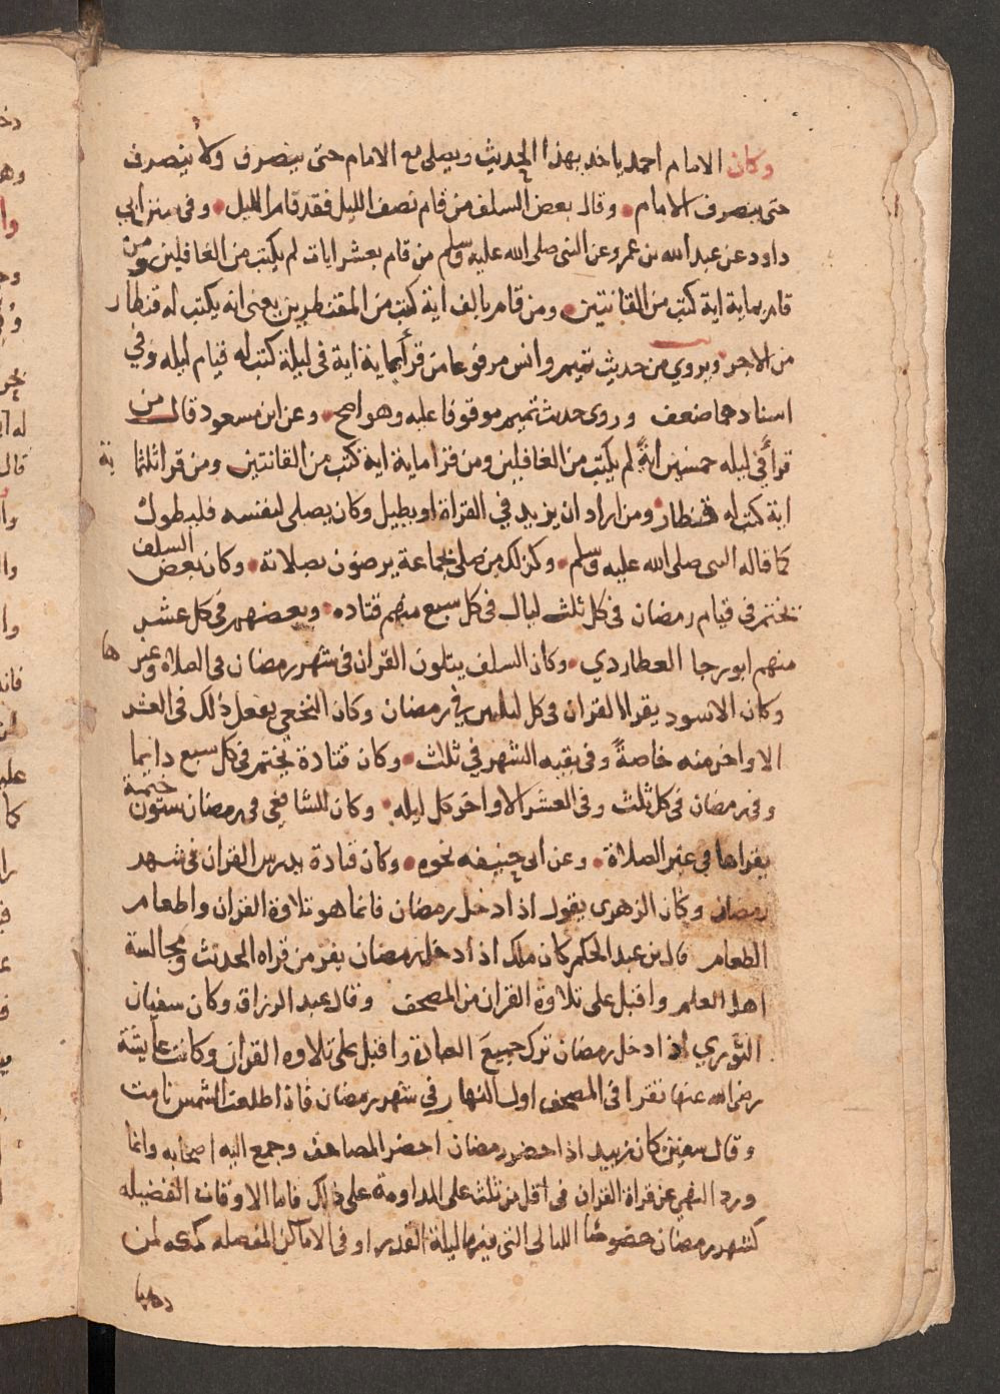 وكان الامام احمد ياخد بهذا الحديث ويصلى مع الامام حتى ينصرف ولا ينصرف
حتى ينصرف الامام وقال بعض السلف من قام نصف الليل فقد قام الليل وفى سنن ابى
داود عن عبد الله بن عمرو عن النبى صلى الله عليه وسلم من قام بعشر ايات لم يكتب من الغافلين ومن
قام بماية اية كتب من القانتين ومن قام بالف اية كتب من المقنطرين يعنى انه يكتب له قنطار
من الاجر ويروي من حديث تميم وانس مرفوعا من قرأ بماية اية فى ليلة كتب له قيام ليله وفي
اسنادهما ضعف وروى حديث تميم موقوفا عليه وهو اصح وعن ابن مسعود قال من
قرأ في ليله خمسين اية لم يكتب من الغافلين ومن قرا ماية اية كتب من القانتين ومن قرا ثلثماية
اية كتب له قنطار ومن اراد ان يزيد في القراة او يطيل وكان يصلى لنفسه فليطول
كما قاله النبى صلى الله عليه وسلم وكذلك من صلى بجماعة يرضون بصلاته وكان بعض السلف
يختم فى قيام رمضان فى كل ثلث ليال فى كل سبع منهم قتاده وبعضهم فى كل عشر
منهم ابو رجا العطاردي وكان السلف يتلون القران فى شهر رمضان فى الصلاة وغيرها
وكان الاسود يقرا القران فى كل ليلتين في رمضان وكان النخعي يفعل ذلك فى العشر
الاواخر منه خاصةً وفى بقيه الشهر في ثلث وكان قتادة يختم فى كل سبع دايما
وفى رمضان فى كل ثلث وفى العشر الاواخر كل ليله وكان الشافعي فى رمضان ستون ختمة
يقراها في غير الصلاة وعن ابى حنيفه نحوه وكان قتادة يدرس القران فى شهر
رمضان وكان الزهرى يقول اذا دخل رمضان فانما هو تلاوة القران واطعام
الطعام قال بن عبد الحكم كان ملك اذا دخل رمضان يفر من قراه الحديث ومجالسة
اهل العلم واقبل على تلاوة القران من المصحف وقال عبد الرزاق وكان سفيان
الثوري اذا دخل رمضان ترك جميعَ العبادة واقبل على تلاوه القران وكانت عايشة
رضى الله عنها تقرا فى المصحف اول النهار في شهر رمضان فاذا طلعت الشمس نامت
وقال سفين كان زبيد اذا حضر رمضان احضر المصاحف وجمع اليه اصحابه وانما
ورد النهي عن قراة القران فى اقل من ثلث على المداومة على ذلك فاما الاوقات الفضيله
كشهر رمضان خصوصًا الليالى التى فيها ليلة القدر او فى الاماكن المفضله كمكه لمن
دخلها